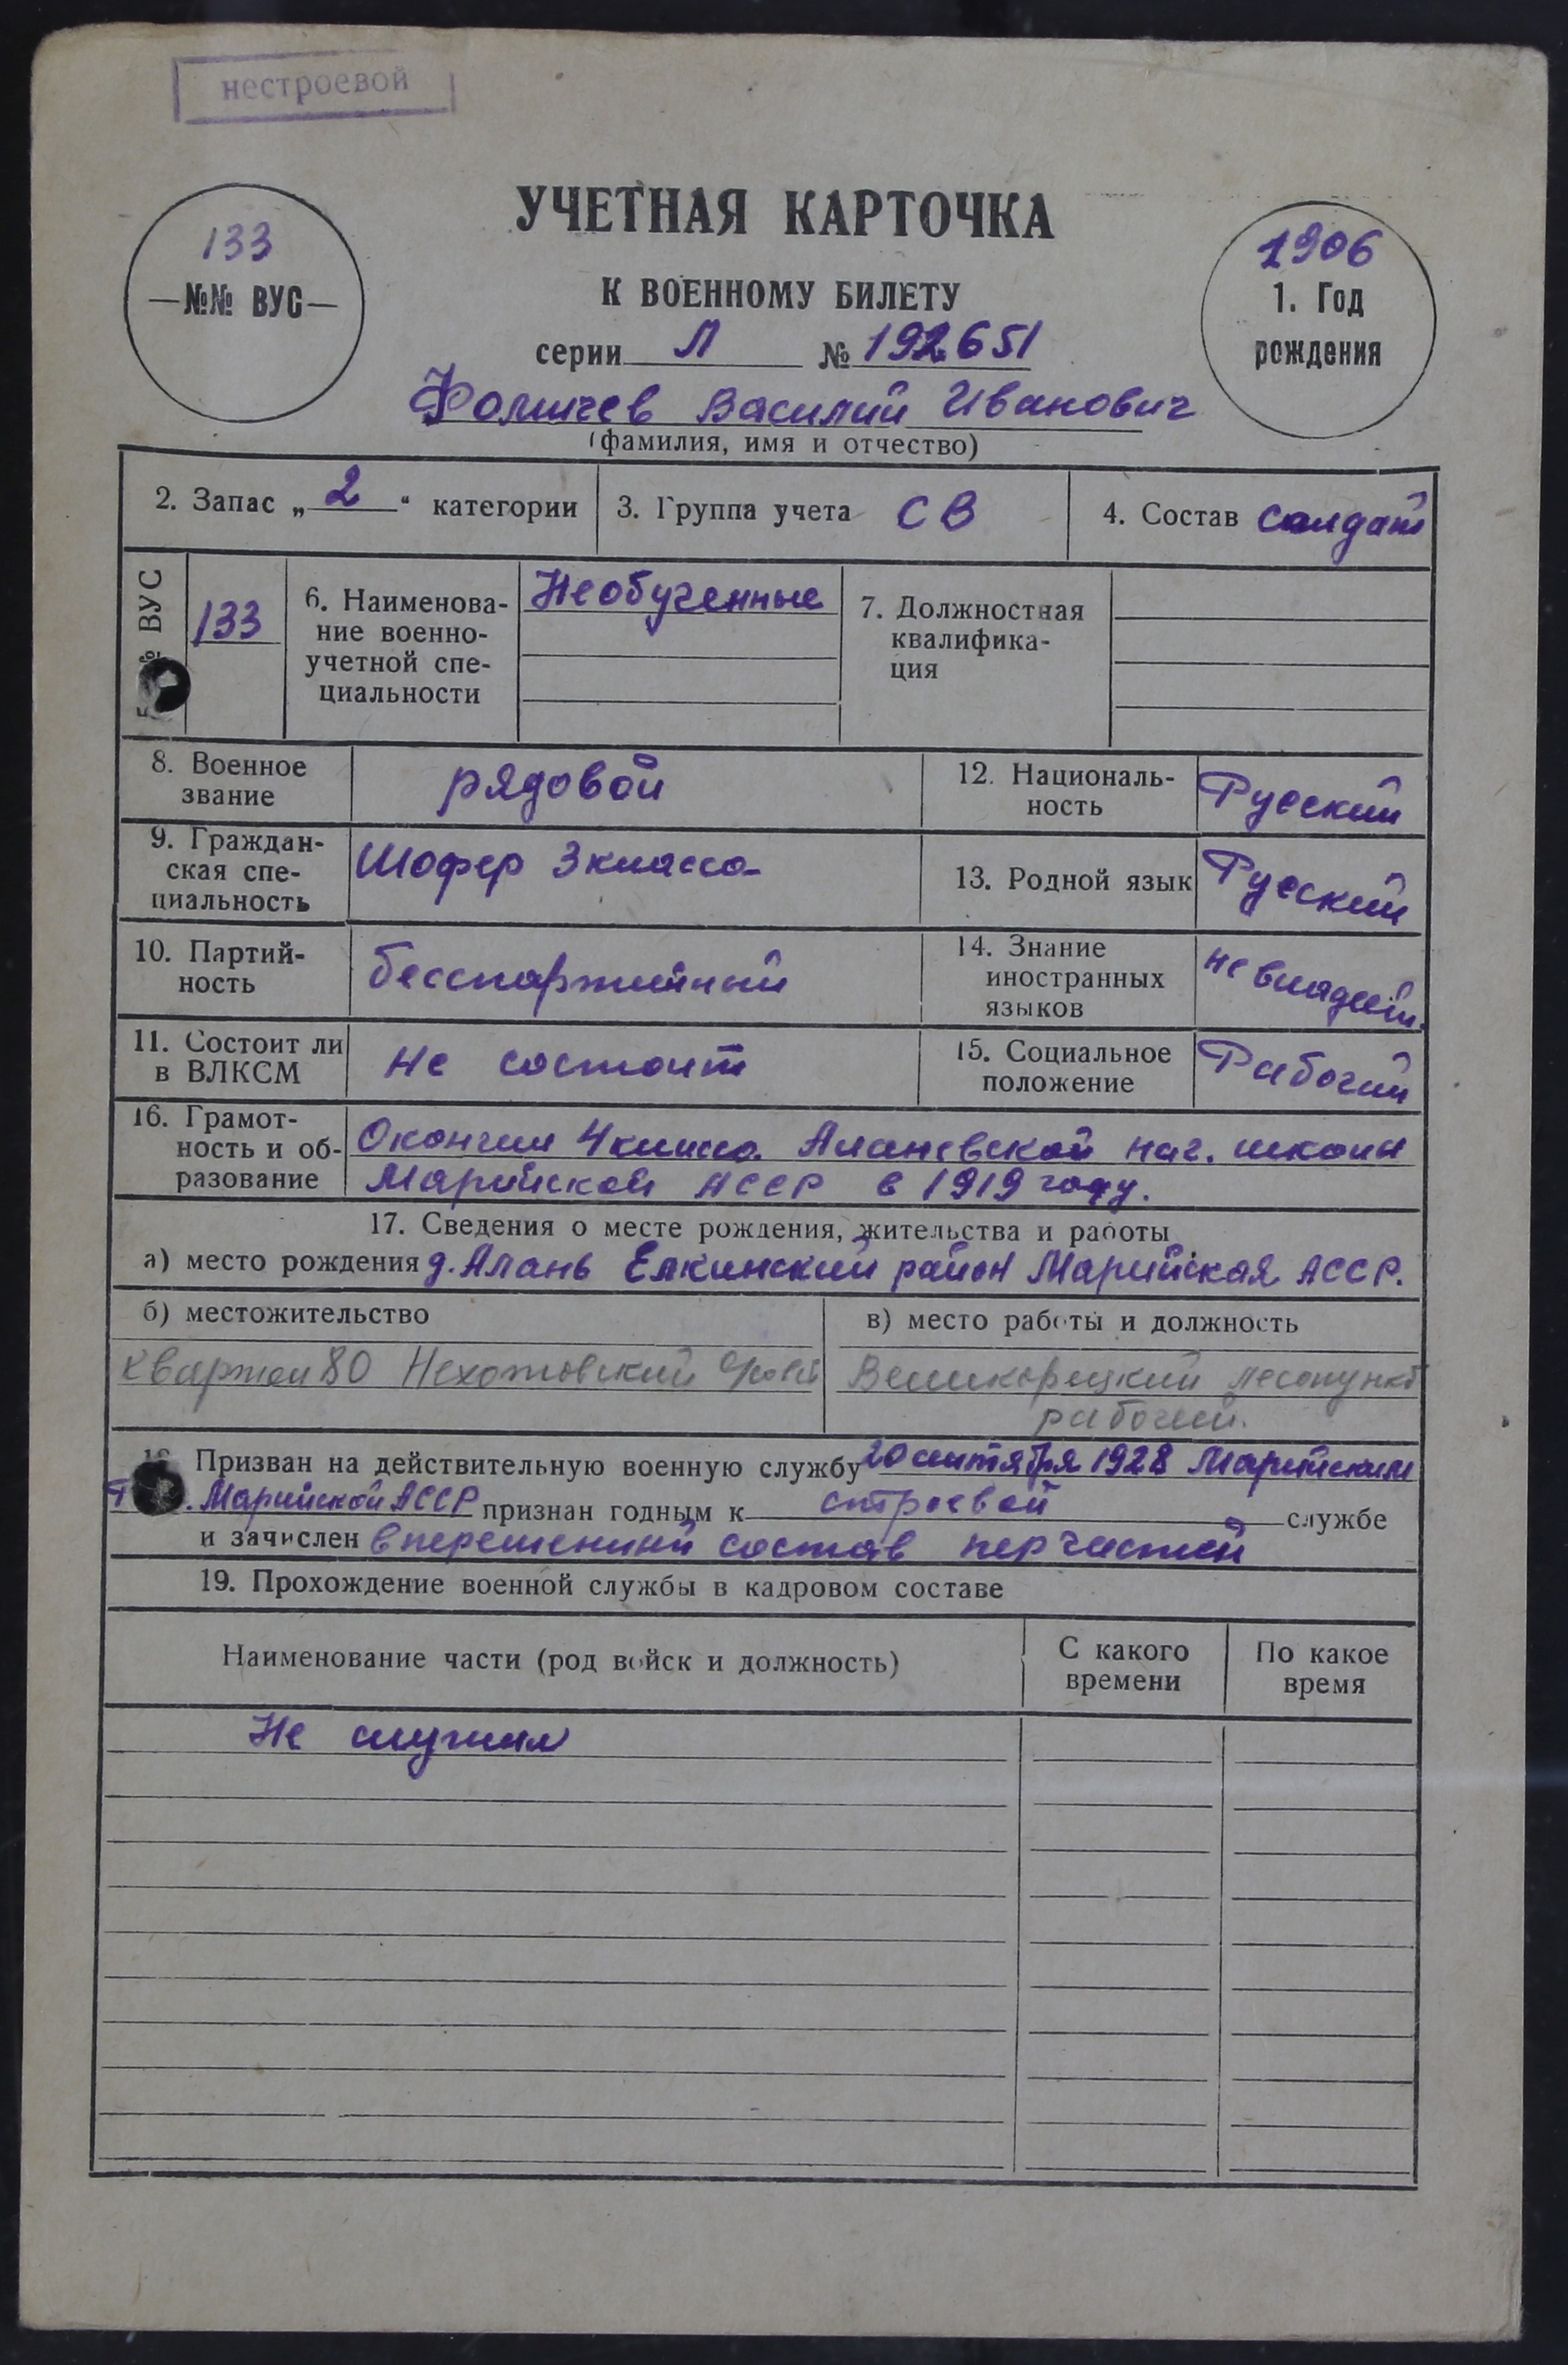 нестроевой
133
—№№ ВУС—
УЧЕТНАЯ КАРТОЧКА
К ВОЕННОМУ БИЛЕТУ
серии Л № 192651
1906
1. Год
рождения
Фомичев Василий Иванович
(фамилия, имя и отчество)
2. Запас „ 2 “ категории
3. Группа учета СВ
4. Состав солдат
5 № ВУС
133
6. Наименова-
ние военно-
учетной спе-
циальности
Необученные
7. Должностная
квалифика-
ция
8. Военное
звание
рядовой
12. Националь-
ность
Русский
9. Граждан-
ская спе-
циальность
Шофер 3 класса
13. Родной язык
Русский
10. Партий-
ность
беспартийный
14. Знание
иностранных
языков
не владеет.
11. Состоит ли
в ВЛКСМ
не состоит
15. Социальное
положение
Рабочий
16. Грамот-
ность и об-
разование
Окончил 4 класса Аланевской нач. школы
Марийской АССР в 1919 году.
17. Сведения о месте рождения, жительства и работы
а) место рождения д. Алань Елкинский район Марийская АССР.
б) местожительство
Квартал 80 Нехотовский
в) место работы и должность
Великорецкий лесопункт
рабочий.
Призван на действительную военную службу 20 октября 1928 Марийским
Марийской АССР признан годным к строевой службе
и зачислен в переменный состав тер частей
19. Прохождение военной службы в кадровом составе
Наименование части (род войск и должность)
С какого
времени
По какое
время
Не служил